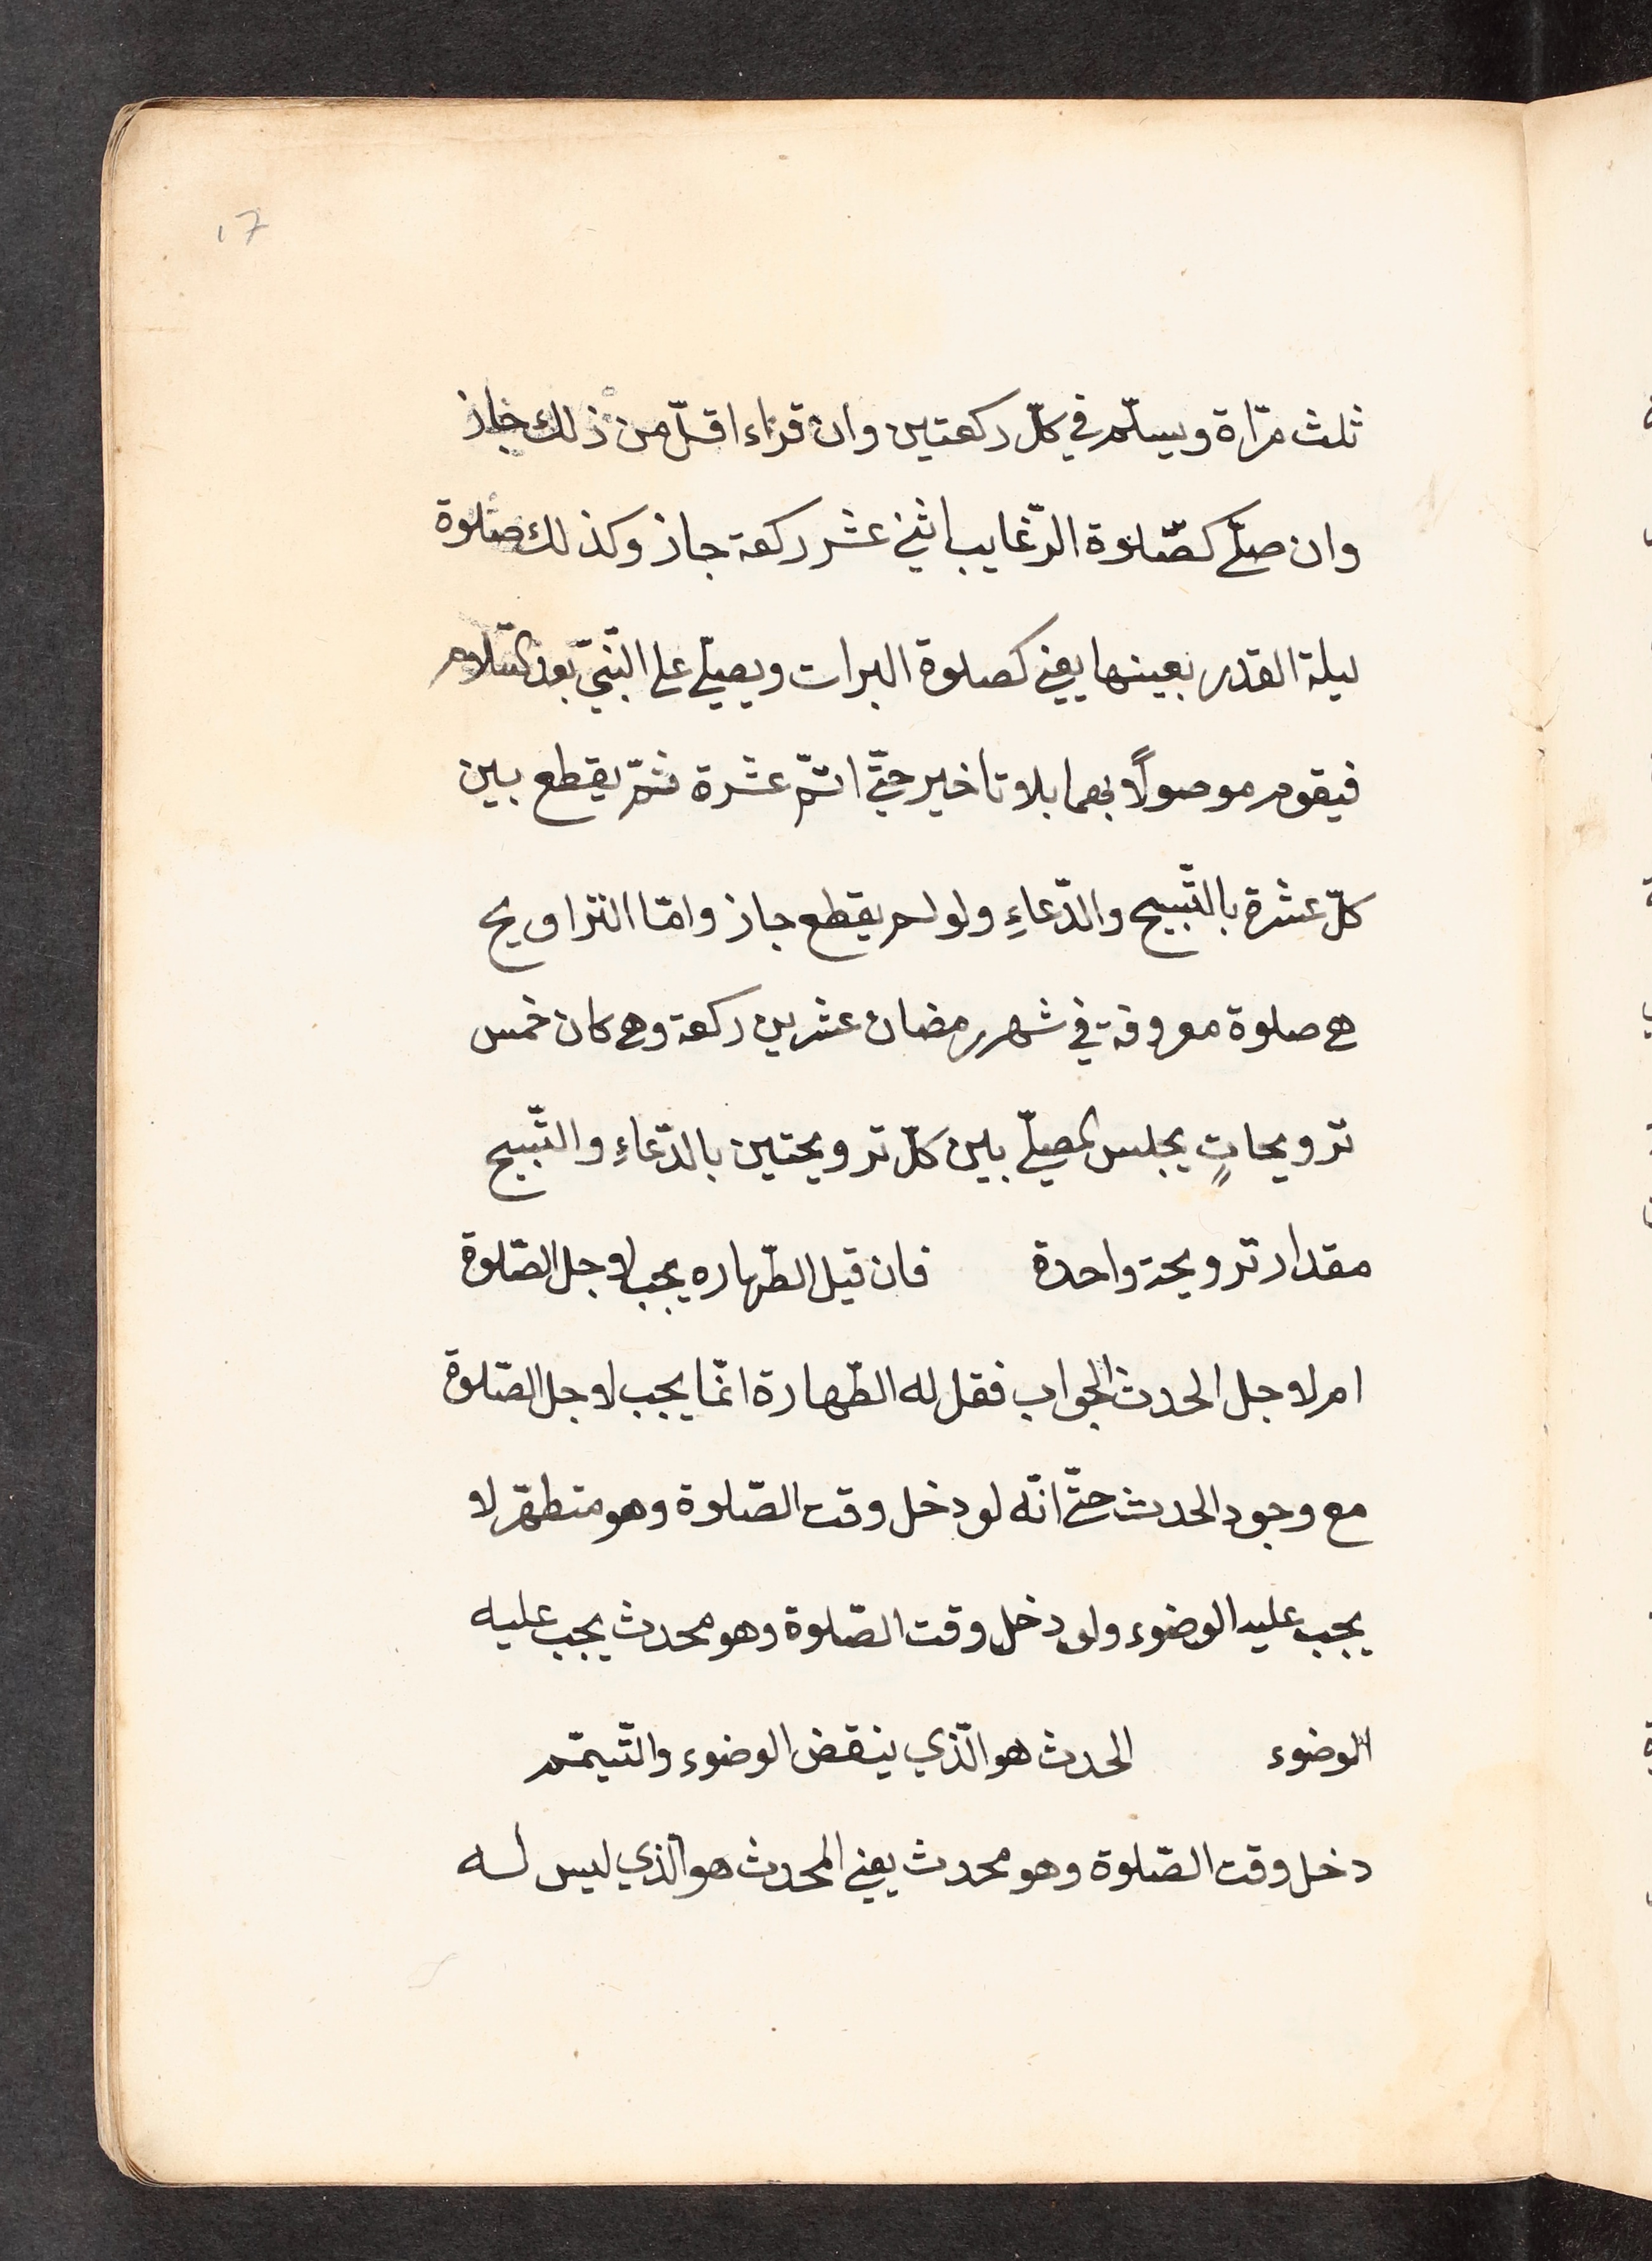 17
ثلث مرّاة ويسلّم في كلّ ركعتين وان قراء اقلّ من ذلك جاز
وان صلّى كصّلوة الرّغايب اثني عشر ركعة جاز وكذلك صلوة
ليلة القدر بعينها يعني كصلوة البرات ويصلّي على النّبيّ بعد السّلام
فيقوم موصولاً بهما بلا تاخير حتّى اتمّ عشرة ثمّ يقطع بين
كلّ عشرة بالتّسبيح والدّعاءِ ولو لم يقطع جاز وامّا التراويح
هي صلوة معروفة في شهر رمضان عشرين ركعة وهي كان خمس
ترويحاتٍ يجلس المصلّي بين كلّ ترويحتين بالدّعاءِ والتّسبيح
مقدار ترويحة واحدة فان قيل الطّهاره يجب لاجل الصّلوة
ام لاجل الحدث الجواب فقل له الطّهارة انّما يجب لاجل الصّلوة
مع وجود الحدث حتّى انّه لو دخل وقت الصّلوة وهو متطهّر لا
يجب عليه الوضوء ولو دخل وقت الصّلوة وهو محدث يجب عليه
الوضوء الحدث هو الّذي ينقض الوضوء والتّيمّم
دخل وقت الصّلوة وهو محدث يعني المحدث هو الّذي ليس له